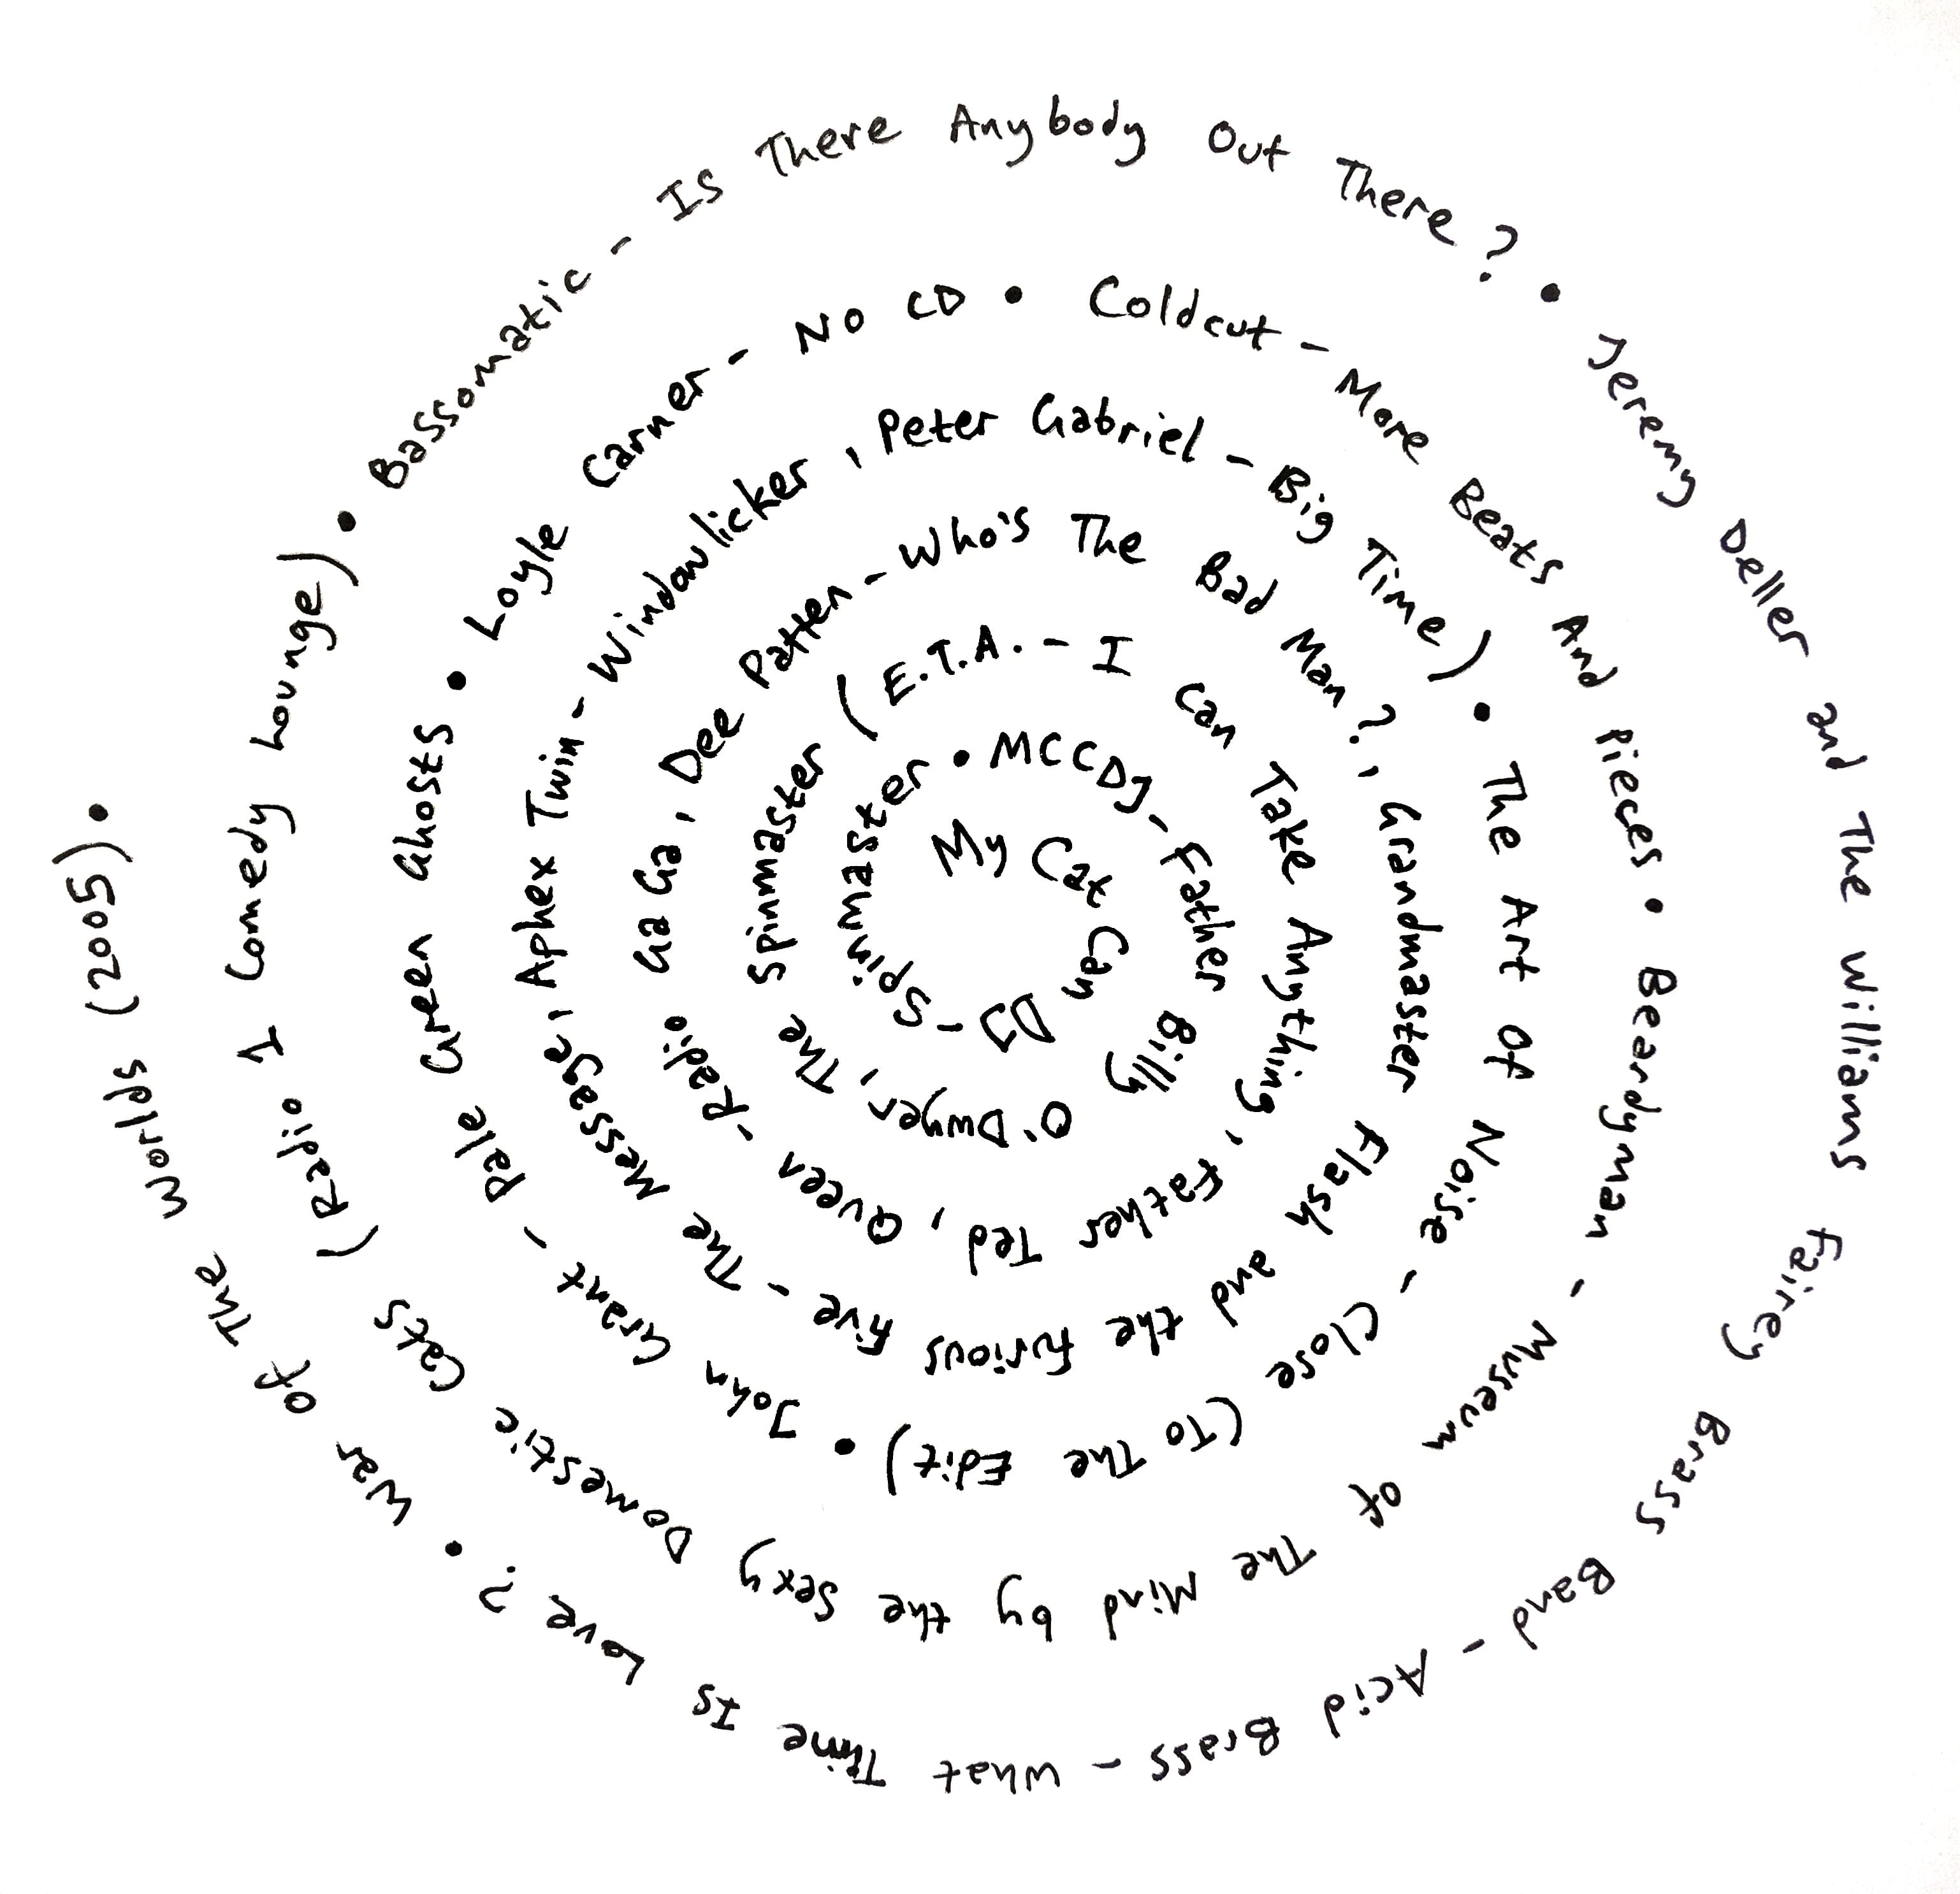 My Cat Can DJ - Spinmaster • MCCDJ - Father Billy O'Dwyer, The Spinmaster (E.T.A. - I Can Take Anything, Father Ted, Queen - Radio Ga Ga, Dee Patten - Who's The Bad Man?, Grandmaster Flash and the furious five - The Message, Aphex Twin - Windowlicker, Peter Gabriel - Big Time) • The Art Of Noise - Close (To The Edit) • John Grant - Pale Green Ghosts • Loyle Carner - No CD • Coldcut - More Beats And Pieces • Beardyman - Museum of The Mind by the Sexy Domestic Cats (Radio 1 Comedy Lounge) • Bassomatic - Is There Anybody Out There? • Jeremy Deller and The Williams Fairey Brass Band - Acid Brass - What Time Is Love? • War Of The Worlds (2005) •